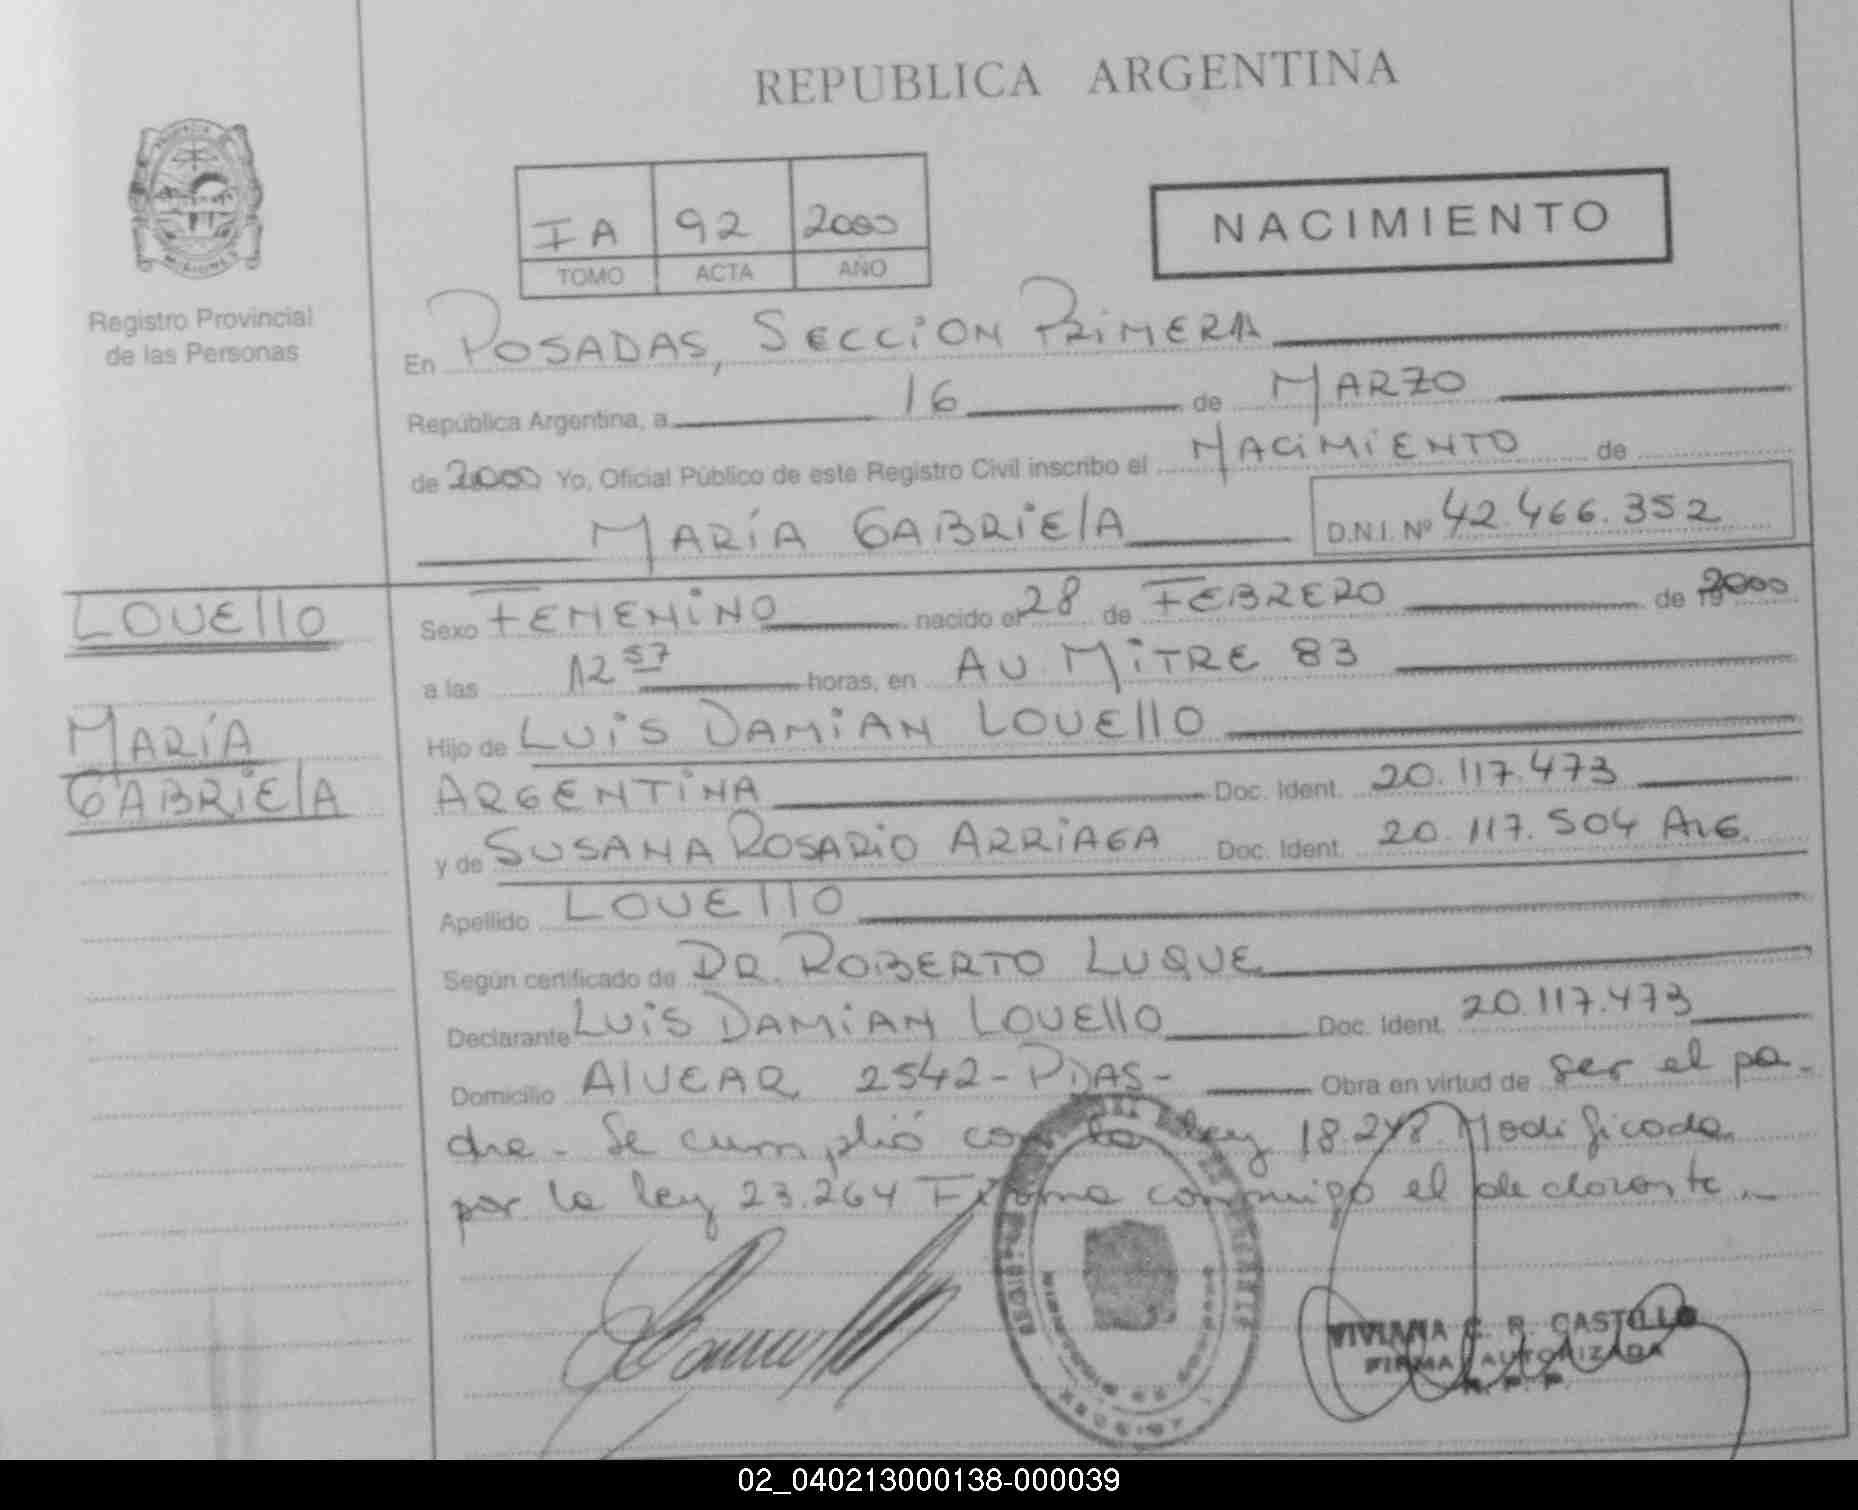 REPUBLICA ARGENTINA
PROVINCIA
MISIONES
Registro Provincial
de las Personas
IA 92 2000
TOMO ACTA AÑO
NACIMIENTO
En POSADAS, SECCION PRIMERA
República Argentina, a 16 de MARZO
de 2000 Yo, Oficial Público de este Registro Civil inscribo el NACIMIENTO de
MARÍA GABRIELA D.N.I. Nº 42.466.352
LOVELLO
MARÍA
GABRIELA
Sexo FEMENINO nacido el 28 de FEBRERO de 2000
a las 12 57 horas, en AV. MITRE 83
Hijo de LUIS DAMIAN LOVELLO
ARGENTINA Doc. Ident. 20.117.473
y de SUSANA ROSARIO ARRIAGA Doc. Ident. 20.117.504 ARG.
Apellido LOVELLO
Según certificado de DR. ROBERTO LUQUE
Declarante LUIS DAMIAN LOVELLO Doc. Ident. 20.117.473
Domicilio ALVEAR 2542-PDAS- Obra en virtud de ser el pa-
dre - Se cumplió con la ley 18.248 Modificada
por la ley 23.264 Firma conmigo el declarante.-
VIVIANA C. R. CASTILLO
FIRMA AUTORIZADA
R. P. P.
02_040213000138-000039